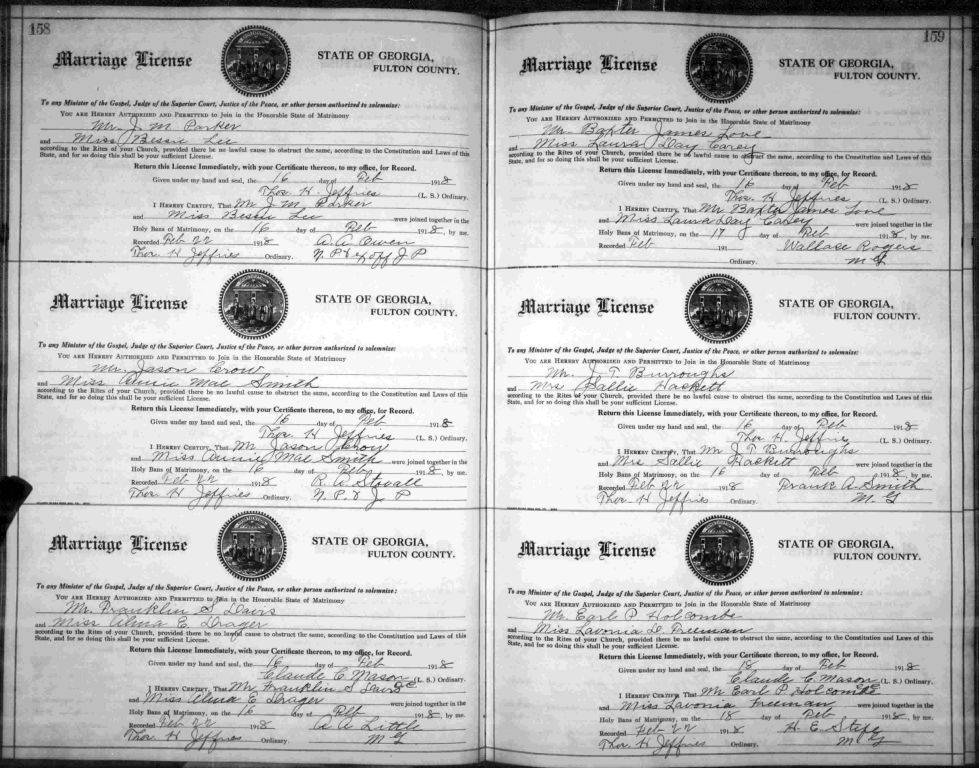 158
Marriage License
STATE OF GEORGIA,
FULTON COUNTY.
To any Minister of the Gospel, Judge of the Superior Court, Justice of the Peace, or other person authorized to solemnize:
YOU ARE HEREBY AUTHORIZED AND PERMITTED to Join in the Honorable State of Matrimony
Mr. J. M. Parker
and Miss Bessie Lee
according to the Rites of your Church, provided there be no lawful cause to obstruct the same, according to the Constitution and Laws of this
State, and for so doing this shall be your sufficient License.
Return this License Immediately, with your Certificate thereon, to my office, for Record.
Given under my hand and seal, the 16 day of Feb 1918
Thos. H. Jeffries (L. S.) Ordinary.
I HEREBY CERTIFY, That Mr J. M. Parker
and Miss Bessie Lee were joined together in the
Holy Bans of Matrimony, on the 16 day of Feb 1918, by me.
Recorded Feb 22 1918 A. A. Owen
Thos. H Jeffries Ordinary. N. P. & exoff J P
Marriage License
STATE OF GEORGIA,
FULTON COUNTY.
To any Minister of the Gospel, Judge of the Superior Court, Justice of the Peace, or other person authorized to solemnize:
YOU ARE HEREBY AUTHORIZED AND PERMITTED to Join in the Honorable State of Matrimony
Mr. Jason Crow
and Miss Annie Mae Smith
according to the Rites of your Church, provided there be no lawful cause to obstruct the same, according to the Constitution and Laws of this
State, and for so doing this shall be your sufficient License.
Return this License Immediately, with your Certificate thereon, to my office, for Record.
Given under my hand and seal, the 16 day of Feb 1918
Thos. H Jeffries (L. S.) Ordinary.
I HEREBY CERTIFY, That Mr Jason Crow
and Miss Annie Mae Smith were joined together in the
Holy Bans of Matrimony, on the 16 day of Feby 1918, by me.
Recorded Feb 22 1918 R. A. Stovall
Thos. H Jeffries Ordinary. N. P. & J P
Marriage License
STATE OF GEORGIA,
FULTON COUNTY.
To any Minister of the Gospel, Judge of the Superior Court, Justice of the Peace, or other person authorized to solemnize:
YOU ARE HEREBY AUTHORIZED AND PERMITTED to Join in the Honorable State of Matrimony
Mr. Franklin S Davis
and Miss Alma E. Drager
according to the Rites of your Church, provided there be no lawful cause to obstruct the same, according to the Constitution and Laws of this
State, and for so doing this shall be your sufficient License.
Return this License Immediately, with your Certificate thereon, to my office, for Record.
Given under my hand and seal, the 16 day of Feb 1918
Claude C. Mason (L. S.) Ordinary.
I HEREBY CERTIFY, That Mr Franklin S Davis
and Miss Alma E Drager were joined together in the
Holy Bans of Matrimony, on the 16 day of Feb 1918, by me.
Recorded Feb 22 1918 A A Little
Thos. H Jeffries Ordinary. M G
159
Marriage License
STATE OF GEORGIA,
FULTON COUNTY.
To any Minister of the Gospel, Judge of the Superior Court, Justice of the Peace, or other person authorized to solemnize:
YOU ARE HEREBY AUTHORIZED AND PERMITTED to Join in the Honorable State of Matrimony
Mr. Baxter James Love
and Miss Laura Day Carey
according to the Rites of your Church, provided there be no lawful cause to obstruct the same, according to the Constitution and Laws of this
State, and for so doing this shall be your sufficient License.
Return this License Immediately, with your Certificate thereon, to my office, for Record.
Given under my hand and seal, the 16 day of Feb 1918
Thos. H Jeffries (L. S.) Ordinary.
I HEREBY CERTIFY, That Mr Baxter James Love
and Miss Laura Day Carey were joined together in the
Holy Bans of Matrimony, on the 17 day of Feb 1918, by me.
Recorded Feb 191 Wallace Rogers
Ordinary. M G
Marriage License
STATE OF GEORGIA,
FULTON COUNTY.
To any Minister of the Gospel, Judge of the Superior Court, Justice of the Peace, or other person authorized to solemnize:
YOU ARE HEREBY AUTHORIZED AND PERMITTED to Join in the Honorable State of Matrimony
Mr. J. T Burroughs
and Mrs Sallie Hackett
according to the Rites of your Church, provided there be no lawful cause to obstruct the same, according to the Constitution and Laws of this
State, and for so doing this shall be your sufficient License.
Return this License Immediately, with your Certificate thereon, to my office, for Record.
Given under my hand and seal, the 16 day of Feb 1918
Thos. H Jeffries (L. S.) Ordinary.
I HEREBY CERTIFY, That Mr J T Burroughs
and Mrs Sallie Hackett were joined together in the
Holy Bans of Matrimony, on the 16 day of Feb 1918, by me.
Recorded Feb 22 1918 Frank A. Smith
Thos. H Jeffries Ordinary. M. G
Marriage License
STATE OF GEORGIA,
FULTON COUNTY.
To any Minister of the Gospel, Judge of the Superior Court, Justice of the Peace, or other person authorized to solemnize:
YOU ARE HEREBY AUTHORIZED AND PERMITTED to Join in the Honorable State of Matrimony
Mr. Earl P. Holcombe
and Miss Lavonia D. Freeman
according to the Rites of your Church, provided there be no lawful cause to obstruct the same, according to the Constitution and Laws of this
State, and for so doing this shall be your sufficient License.
Return this License Immediately, with your Certificate thereon, to my office, for Record.
Given under my hand and seal, the 18 day of Feb 1918
Claude C. Mason (L. S.) Ordinary.
I HEREBY CERTIFY, That Mr Earl P. Holcombe
and Miss Lavonia Freeman were joined together in the
Holy Bans of Matrimony, on the 18 day of Feb 1918, by me.
Recorded Feb 22 1918 H. E. Stipe
Thos. H Jeffries Ordinary. M G